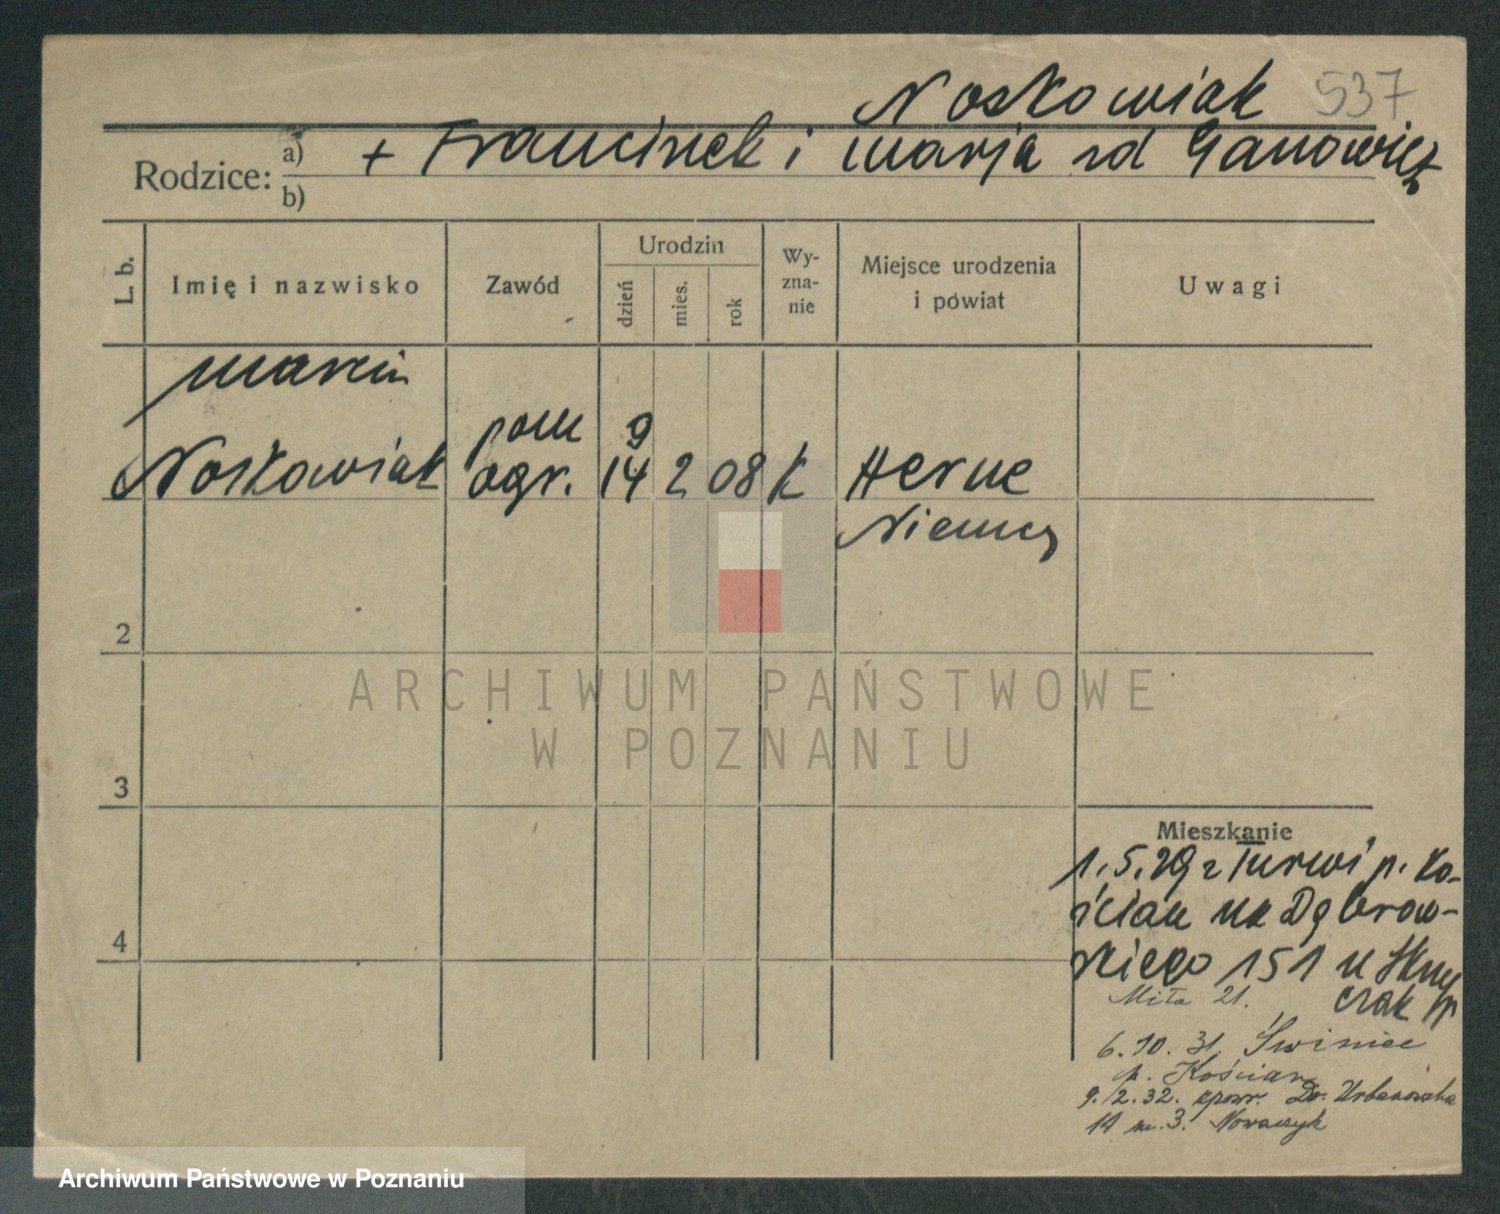 Noskowiak 537
Rodzice: a) + Franciszek i Marja zd Ganowicz
b)
L. b.
Imię i nazwisko
Zawód
Urodzin
dzień
mies.
rok
Wy-
zna-
nie
Miejsce urodzenia
i powiat
Uwagi
Marcin
pom 9
Noskowiak ogr. 14 2 08 k Herne
Niemcy
2
ARCHIWUM PAŃSTWOWE
W POZNANIU
3
Mieszkanie
1.5.29 z Turwi p. Ko-
ścian na Dąbrow-
4
skiego 151 u
czak
Miła 21.
6.10.31.
p. Kościan
9./2.32. spowr. Dr.
14 m. 3. Nowaczyk
Archiwum Państwowe w Poznaniu